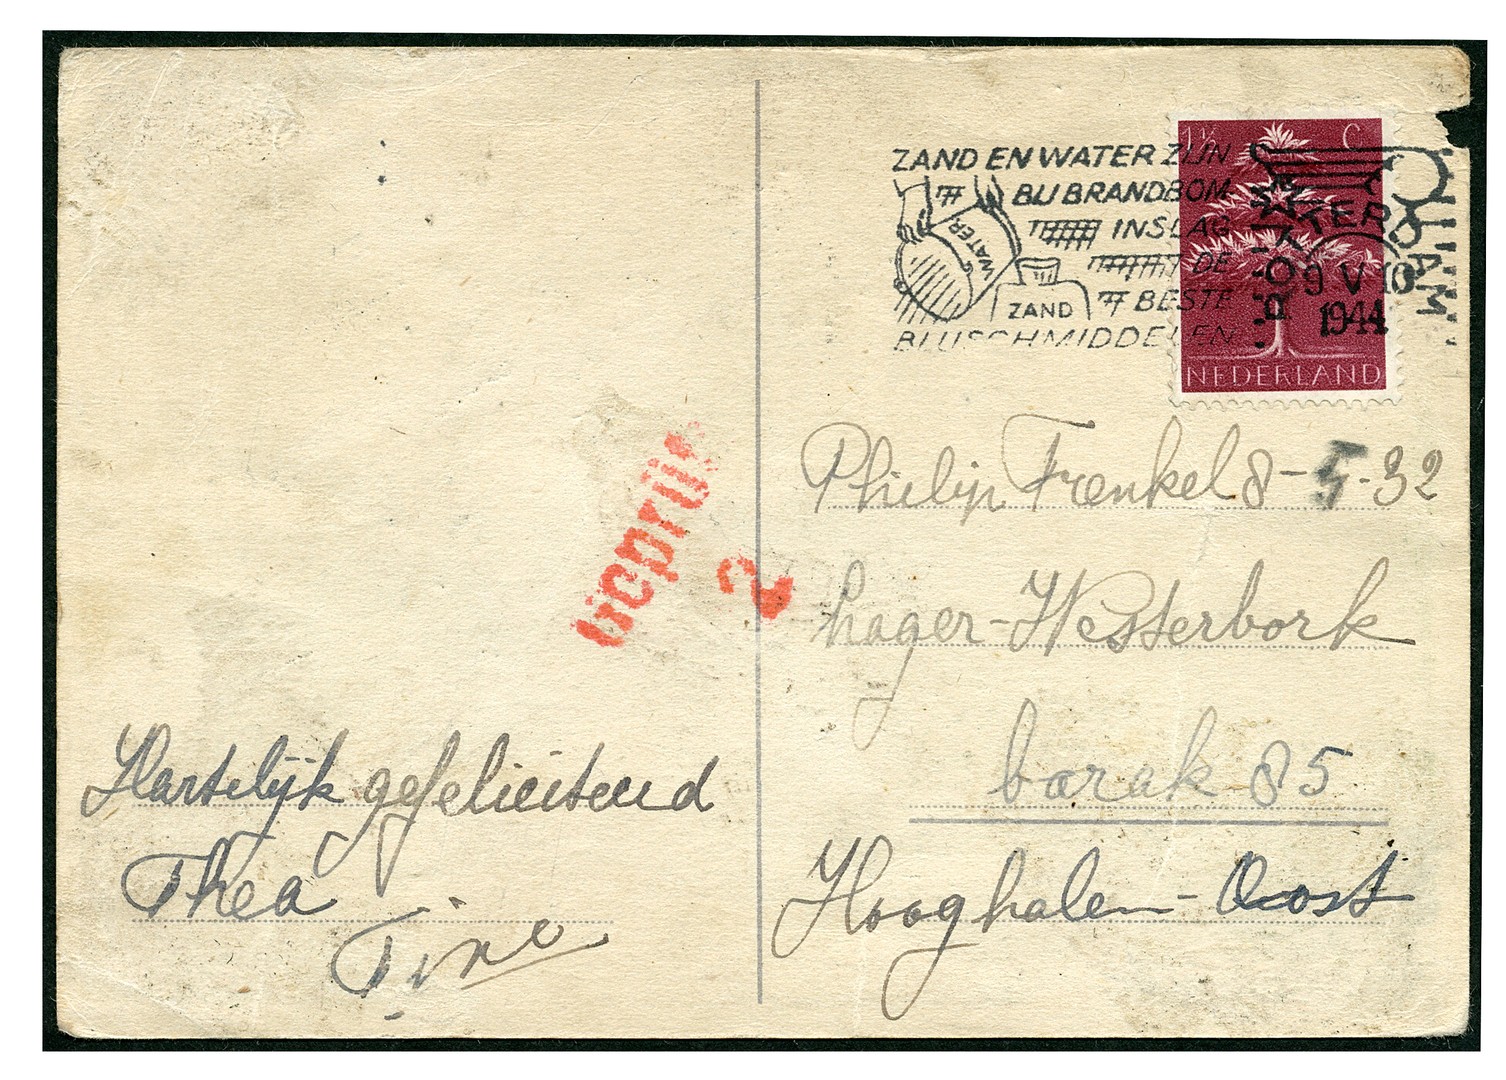 ZAND EN WATER ZIJN
BIJ BRANDBOM
INSLAG
DE
BESTE
BLUSCHMIDDELEN
WATER
WATER
ZAND
1½ C
NEDERLAND
9 V 10
1944
Geprüft
2
Philip Frenkel 8-5-32
Lager-Westerbork
barak 85
Hooghalen-Oost
Hartelijk gefeliciteerd
Thea
Tine